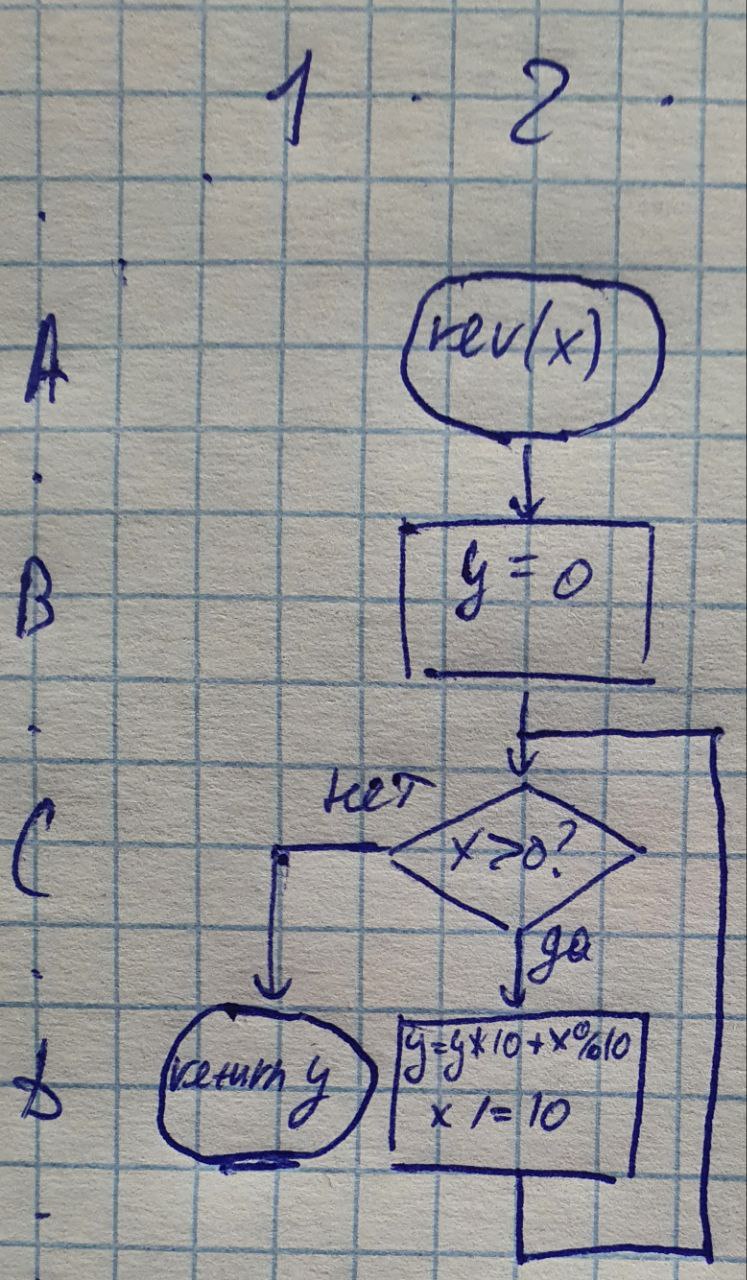 1 2
A
rev(x)
B
y = 0
C
нет
x>0?
да
D
return y
y=y*10+x%10
x /= 10